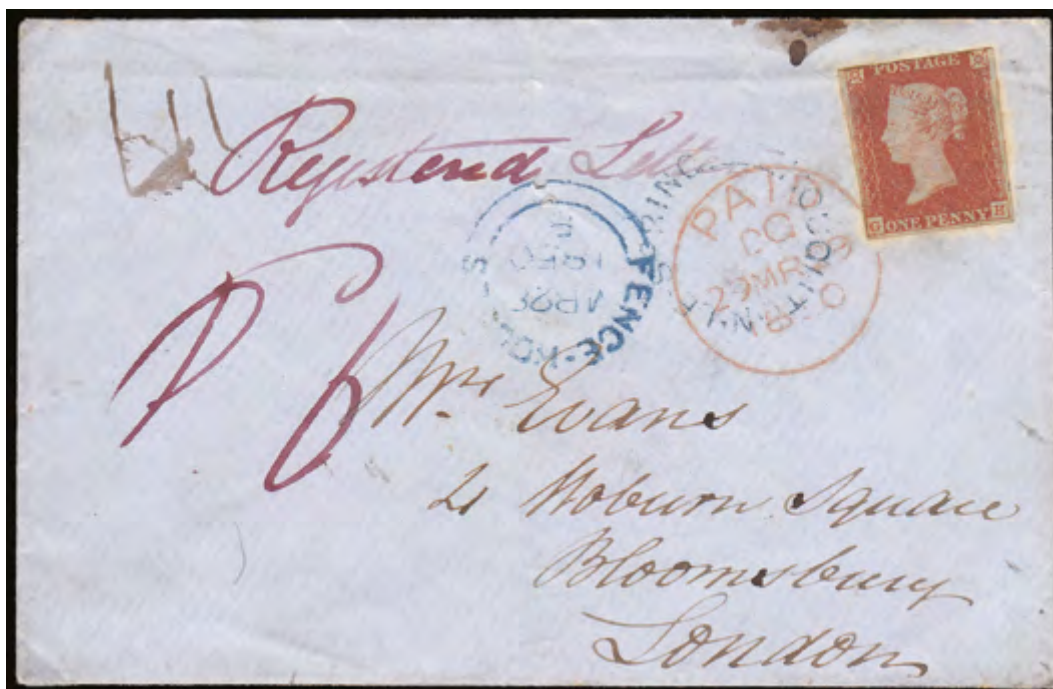 Registered Letter
POSTAGE
G ONE PENNY H
PAID
29 MR 29
1850
FENCE-HOUSES
MR 28
1850
P 6
Mr Evans
21 Woburn Square
Bloomsbury
London